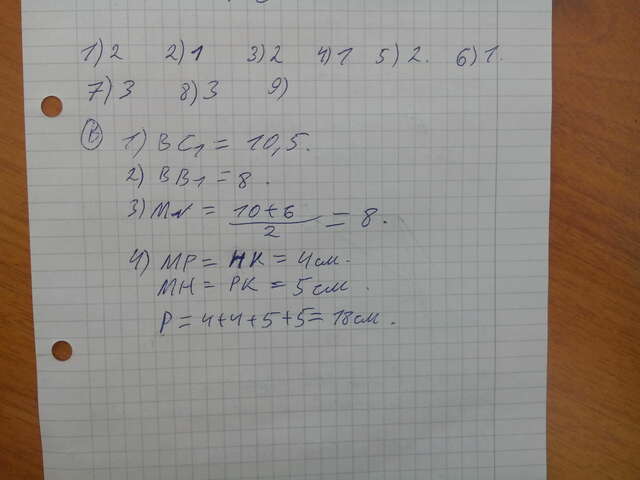 1) 2 2) 1 3) 2 4) 1 5) 2. 6) 1.
7) 3 8) 3 9)
В 1) BC₁ = 10,5.
2) BB₁ = 8.
3) MN = 10+6/2 = 8.
4) МР = НК = 4см.
МН = РК = 5см.
Р = 4+4+5+5 = 18см.